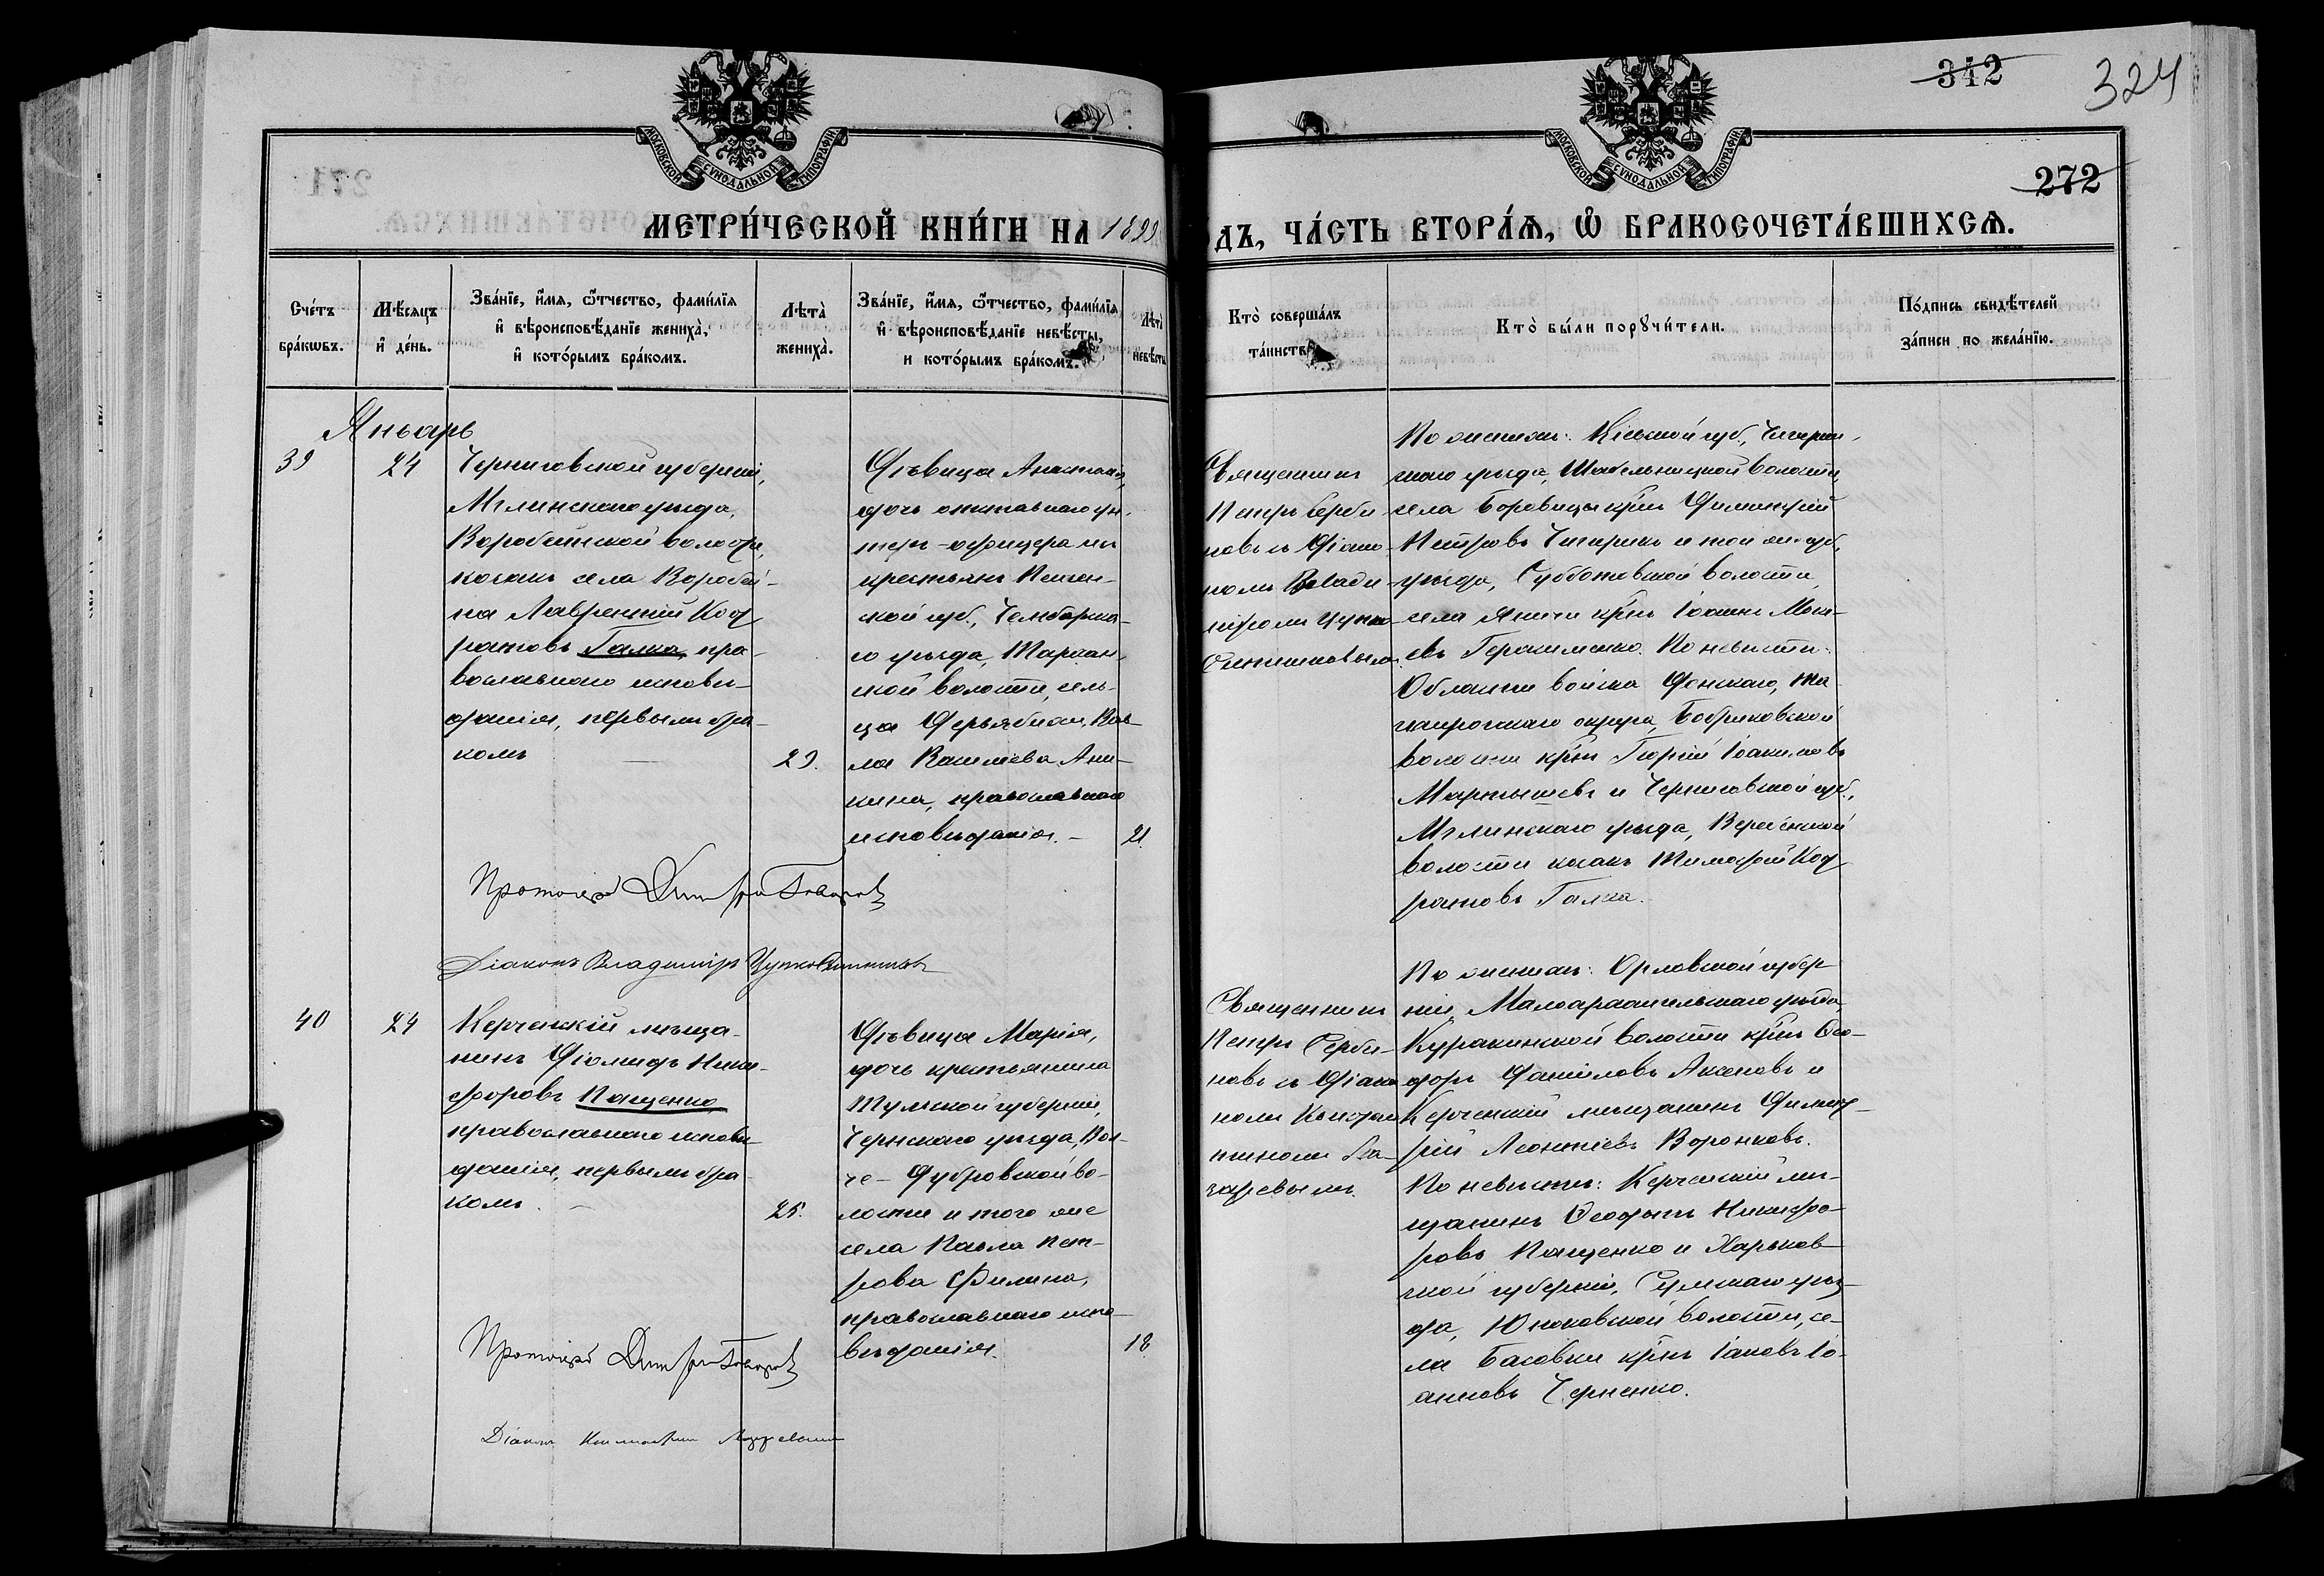 342
324
272
МОСКОВСКОЙ СѴНОДАЛЬНОЙ ТИПОГРАФІИ
МОСКОВСКОЙ СѴНОДАЛЬНОЙ ТИПОГРАФІИ
МЕТРИ́ЧЕСКОЙ КНИ́ГИ НА 1899
ДЪ, ЧА́СТЬ ВТОРА́Ѧ, Ѡ҆ БРАКОСОЧЕТА́ВШИХСѦ.
Сче́тъ
бра́кѡвъ.
Мѣ́сѧцъ
и҆ де́нь.
Зва́нїе, и҆́мѧ, ѻ҆́тчество, фами́лїѧ
и҆ вѣроисповѣ́данїе жениха̀,
и҆ кото́рымъ бра́комъ.
Лѣта̀
жениха̀.
Зва́нїе, и҆́мѧ, ѻ҆́тчество, фами́лїѧ
и҆ вѣроисповѣ́данїе невѣ́сты,
и кото́рымъ бра́комъ.
Лѣта̀
невѣ́сты
Кто̀ соверша́лъ
та́инств
Кто̀ бы́ли порꙋчи́тели.
По́дпись свидѣ́телей
за́писи по жела́нїю.
Январь
39
24
Черниговской губерніи,
Мглинскаго уѣзда,
Воробейнской волости,
козакъ села Воробей-
на Лаврентій Код
ратовъ Галка, пра-
вославнаго исповѣ-
данія, первымъ бра-
комъ
29.
Дѣвица Анастасія,
дочь отставнаго ун-
теръ-офицера изъ
крестьянъ Пензен-
ской губ., Чембарска-
го уѣзда, Тархан-
ской волости, сель-
ца Дерябкина, Ва-
Василіева Ани-
кина, православнаго
исповѣданія.
21.
Священникъ
Петръ Серби-
новъ съ Діако-
номъ Влади-
міромъ Цупко-
Ситниковымъ.
По женихѣ: Кіевской губ., Чигирин-
скаго уѣзда, Шабельницкой волости,
села Боровицы кр-нъ Димитрій
Петровъ Чигрикъ и той же губ.,
уѣзда, Субботовской волости,
села Яничи кр-нъ Іоаннъ Моисе-
евъ Герасименко. По невѣстѣ:
Области войска Донскаго, Та-
ганрогскаго округа, Бобриковской
волости кр-нъ Георгій Іоакимовъ
Мартышевъ и Черниговской губ.,
Мглинскаго уѣзда,
волости козакъ Тимофей Код
ратовъ Галка.
Протоіерей Димитрій
Діаконъ Владиміръ Цупко-Ситниковъ
40
24
Керченскій мѣща-
нинъ Діомидъ Ники-
форовъ Пащенко,
православнаго исповѣ-
данія, первымъ бра-
комъ.
25.
Дѣвица Марія,
дочь крестьянина
Тульской губерніи,
Чернскаго уѣзда, Вол-
че-Дубровской во-
лости и того же
села Павла Пет-
рова Филина,
православнаго испо-
вѣданія.
18.
Священникъ
Петръ Серби-
новъ съ Діако-
номъ Констан-
тиномъ Ла-
заревымъ.
По женихѣ: Орловской губер-
ніи, Малоархангельскаго уѣзда,
Куракинской волости кр-нъ Ѳео-
доръ Даниловъ Аксеновъ и
Керченскій мѣщанинъ Димит-
рій Леонтіевъ Воронковъ.
По невѣстѣ: Керченскій мѣ-
щанинъ Ѳеодотъ Никифо-
ровъ Пащенко и Харьков-
ской губерніи, Сумскаго уѣз-
да, Юнаковской волости, се-
ла Басовки кр-нъ Іаковъ Іо-
анновъ Черненко.
Протоіерей Димитрій
Діаконъ